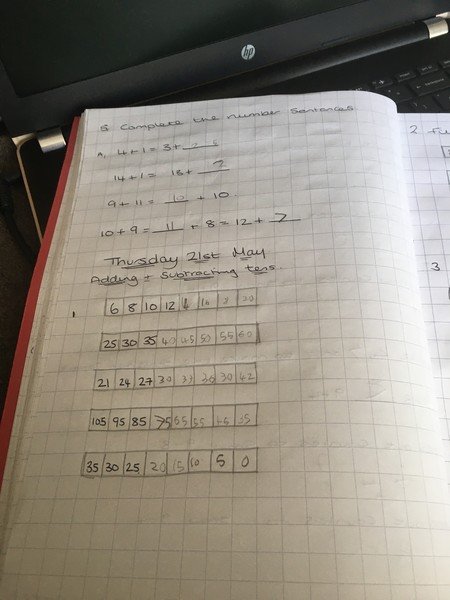 hp
5 Complete the number sentences
A, 4+1 = 3+
14+1 = 13+ 2
9+11 = 10 + 10.
10+9 = 11 + 8 = 12 + 7
Thursday 21st May
Adding & Subtracting tens.
1. 6 8 10 12
25 30 35 40 45 50 55 60
21 24 27 30 33 36 30 42
105 95 85 75 65 55 45 35
35 30 25 20 15 10 5 0
2
3